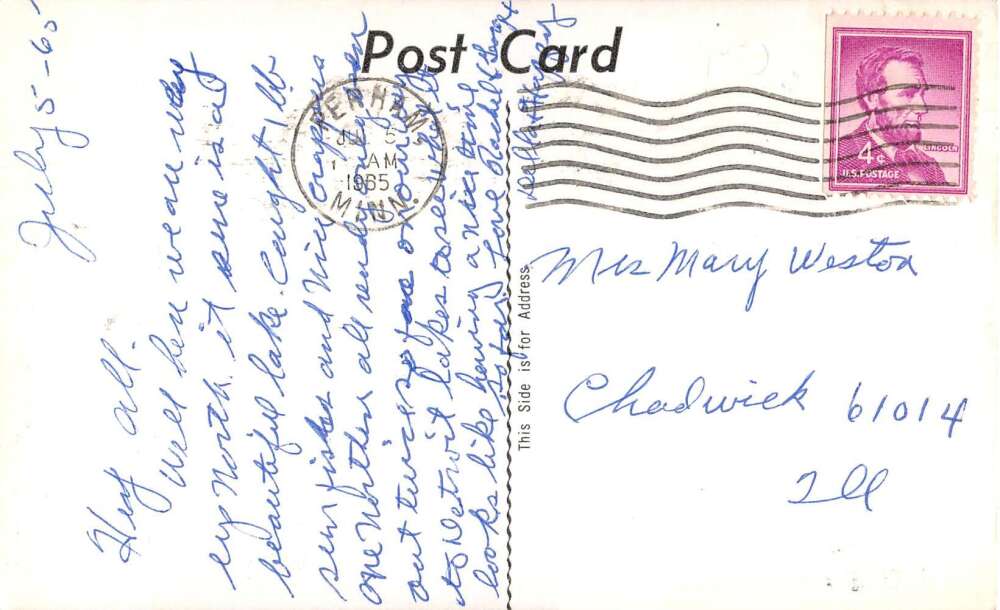 Post Card
July 5-65
Hey all.
Well here we are way
up North. it sure is a
beautiful lake. Caught 16
sunfishes and nice crappies
one Northern all ready. been
out twice so far on our way
to Detroit Lakes to see what it
looks like having a nice time
so far. Love Rachel & George
PERHAM
JUL 5
AM
1965
MINN.
LINCOLN
4¢
U.S. POSTAGE
This Side is for Address
Mrs Mary Weston
Chadwick 61014
Ill